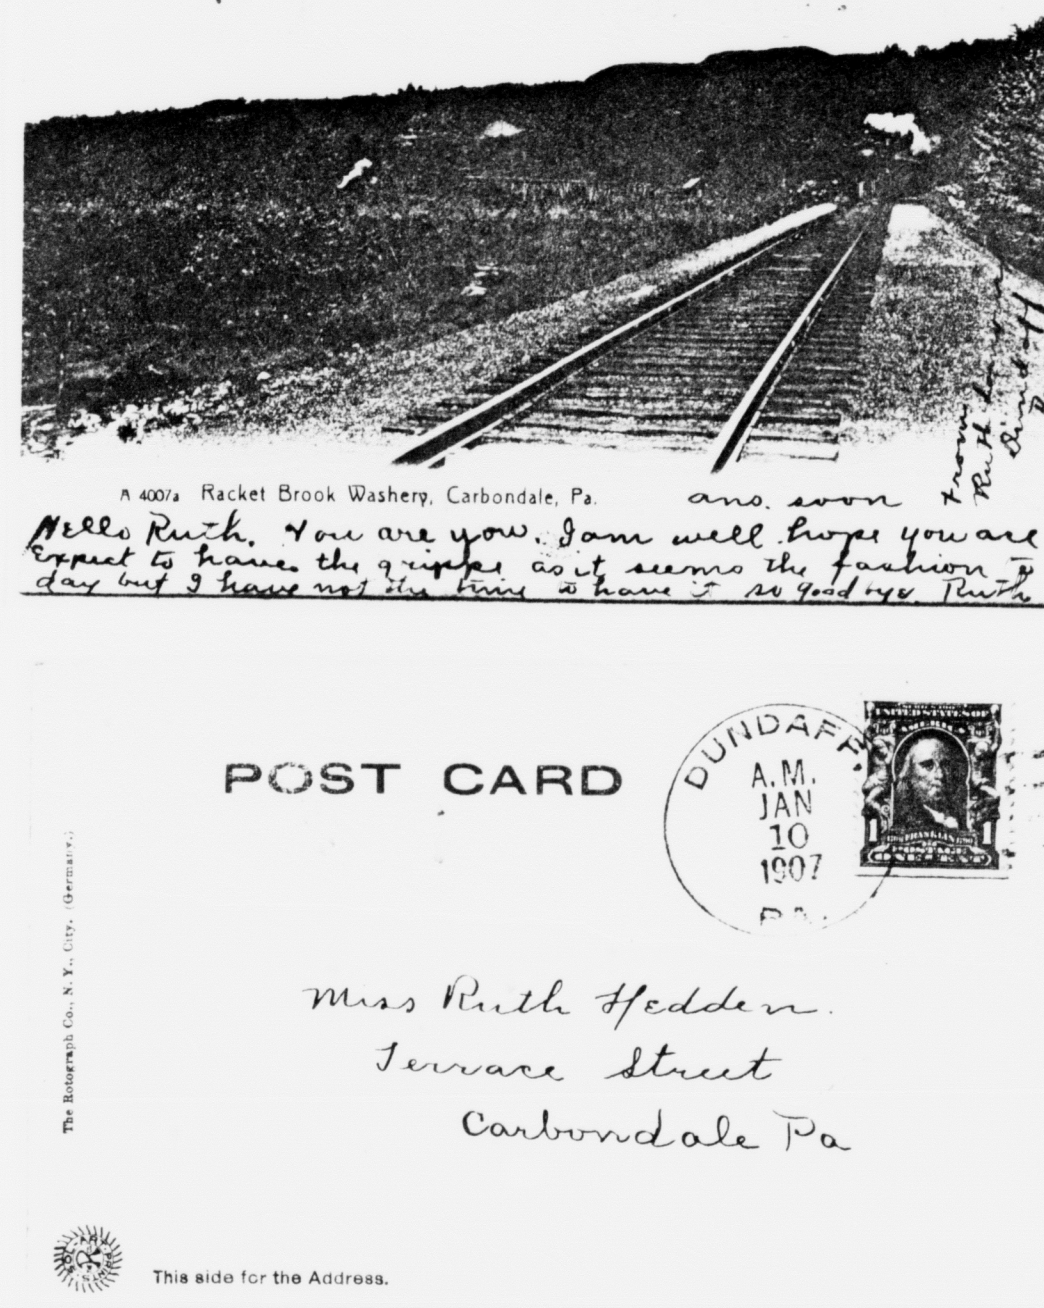 A 4007a Racket Brook Washery, Carbondale, Pa.
ans. soon
From
Ruth
Dundaff
Hello Ruth. You are you. I am well hope you are
Expect to have the grippe as it seems the fashion to
day but I have not the time to have it so good bye Ruth
POST CARD
DUNDAFF
A.M.
JAN
10
1907
PA.
UNITED STATES OF
AMERICA
1 FRANKLIN 1
POSTAGE
ONE CENT
The Rotograph Co., N. Y., City. (Germany.)
Miss Ruth Hedden.
Terrace Street
Carbondale Pa
SOL-ART
PRINTS
R
This side for the Address.